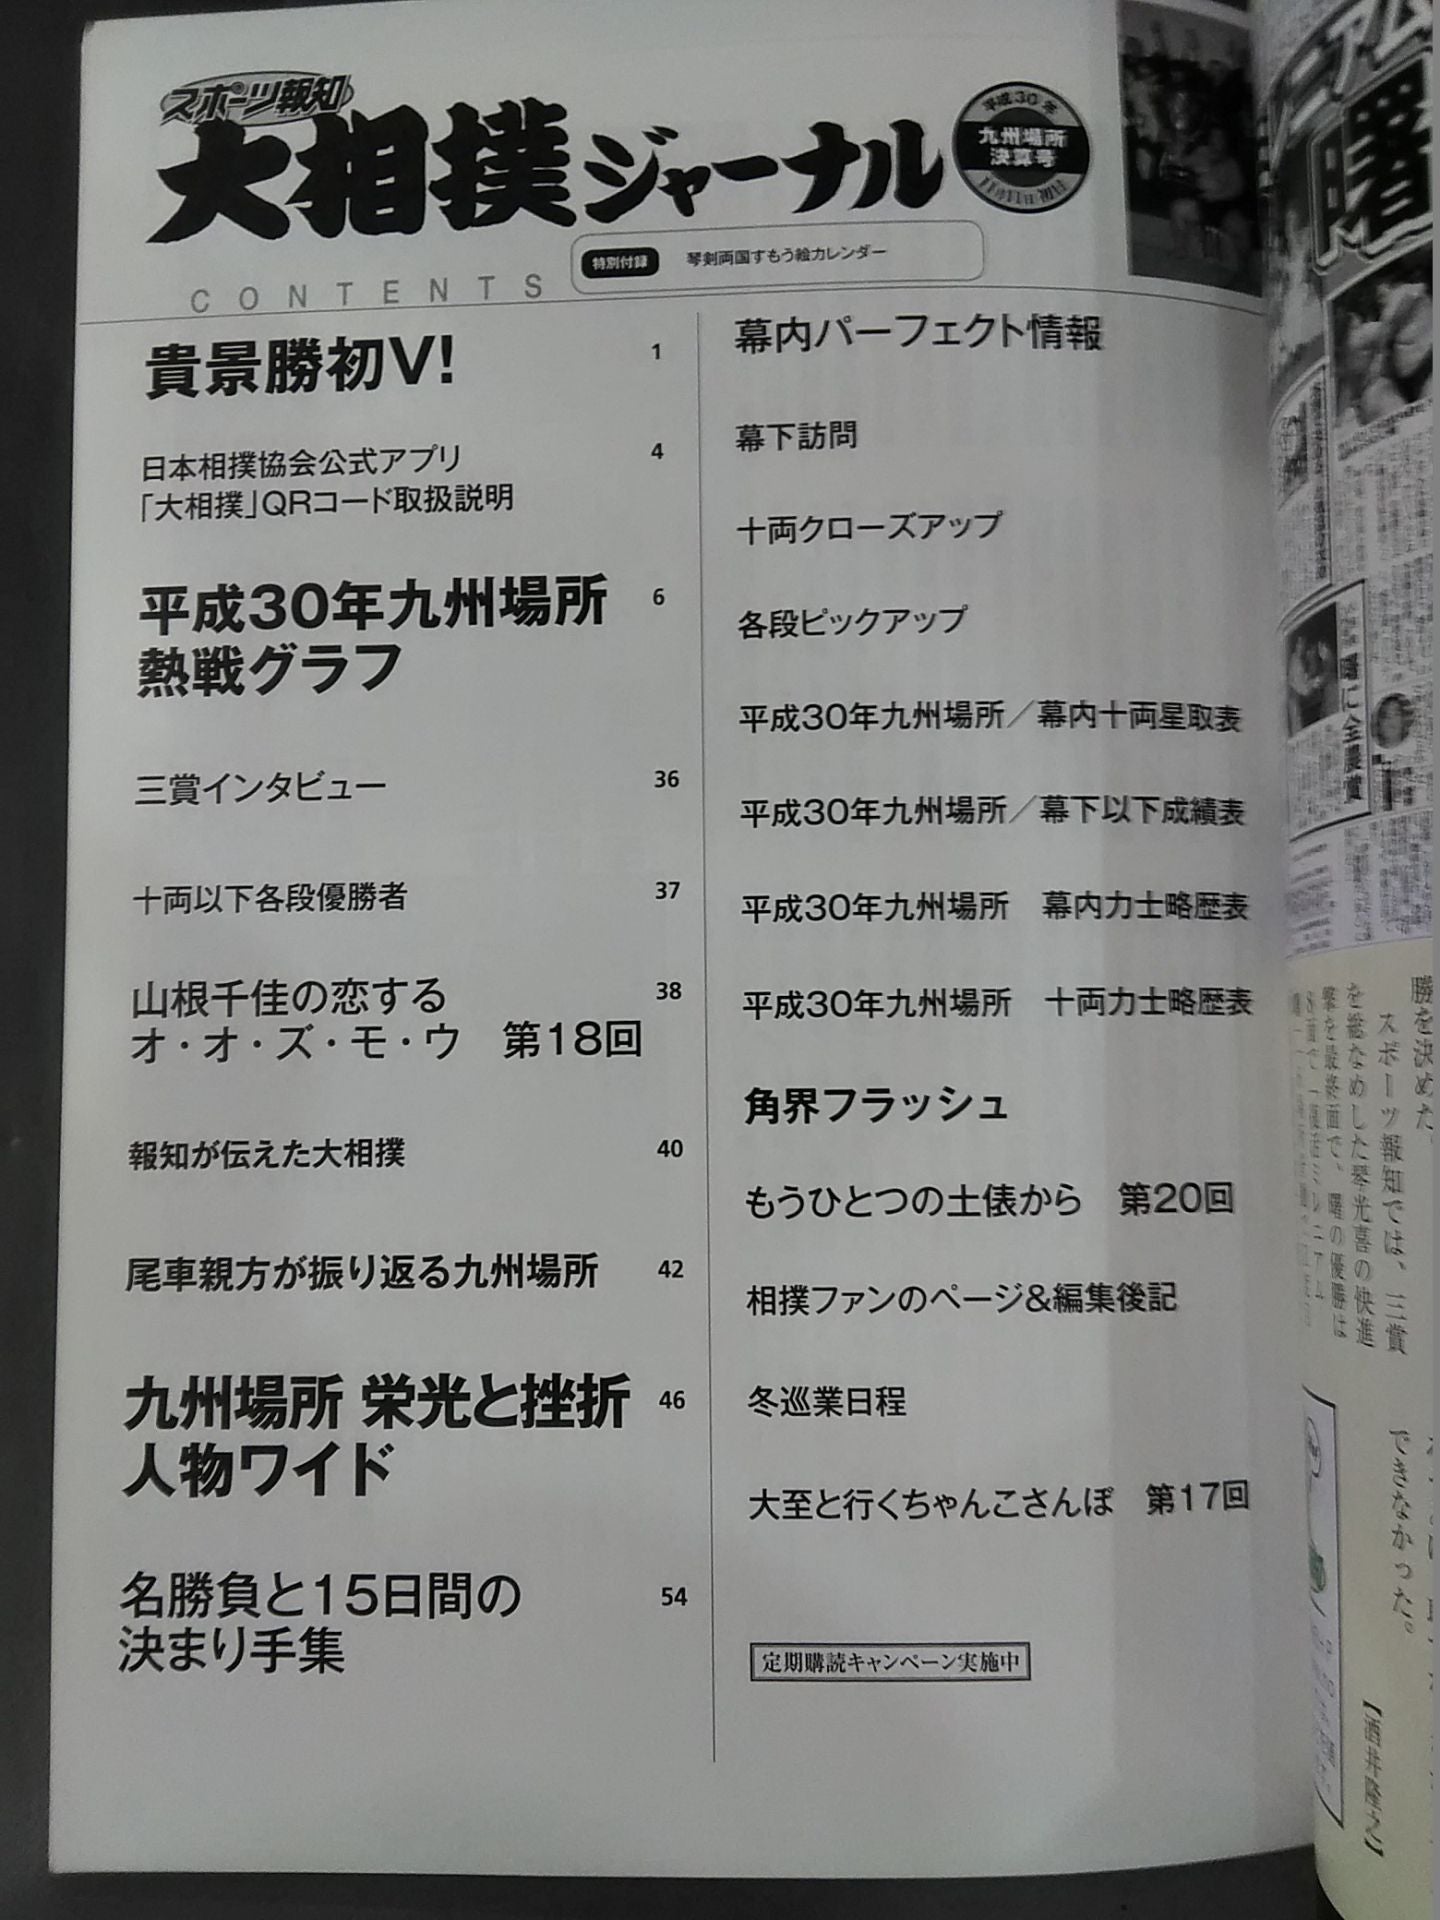 スポーツ報知
大相撲ジャーナル
平成30年
九州場所
決算号
特別付録 琴剣両国すもう絵カレンダー
CONTENTS
貴景勝初V! 1
日本相撲協会公式アプリ 4
「大相撲」QRコード取扱説明
平成30年九州場所 6
熱戦グラフ
三賞インタビュー 36
十両以下各段優勝者 37
山根千佳の恋する 38
オ・オ・ズ・モ・ウ 第18回
報知が伝えた大相撲 40
尾車親方が振り返る九州場所 42
九州場所 栄光と挫折 46
人物ワイド
名勝負と15日間の 54
決まり手集
幕内パーフェクト情報
幕下訪問
十両クローズアップ
各段ピックアップ
平成30年九州場所／幕内十両星取表
平成30年九州場所／幕下以下成績表
平成30年九州場所 幕内力士略歴表
平成30年九州場所 十両力士略歴表
角界フラッシュ
もうひとつの土俵から 第20回
相撲ファンのページ&編集後記
冬巡業日程
大至と行くちゃんこさんぽ 第17回
定期購読キャンペーン実施中
曙
曙に全農賞
勝を決めた。
スポーツ報知では、三賞
を総なめした琴光喜の快進
撃を最終面で、曙の優勝は
できなかった。
【酒井隆之】